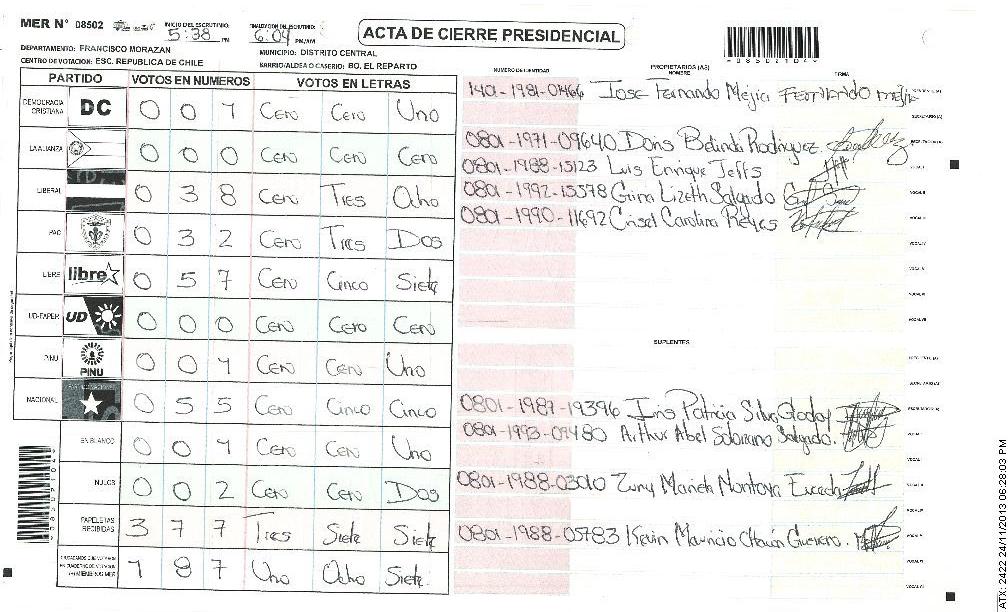 MER N° 08502
INICIO DEL ESCRUTINIO: 5:38 PM
FINALIZACION DEL ESCRUTINIO: 6:04 PM/AM
ACTA DE CIERRE PRESIDENCIAL
DEPARTAMENTO: FRANCISCO MORAZAN
MUNICIPIO: DISTRITO CENTRAL
CENTRO DE VOTACION: ESC. REPUBLICA DE CHILE
BARRIO/ALDEA O CASERIO: BO. EL REPARTO
PARTIDO VOTOS EN NUMEROS VOTOS EN LETRAS
DEMOCRACIA CRISTIANA DC 0 0 1 Cero Cero Uno
LA ALIANZA 0 0 0 Cero Cero Cero
LIBERAL 0 3 8 Cero Tres Ocho
PAC 0 3 2 Cero Tres Dos
LIBRE libre 0 5 7 Cero Cinco Siete
UD-FAPER UD 0 0 0 Cero Cero Cero
PINU PINU 0 0 1 Cero Cero Uno
NACIONAL 0 5 5 Cero Cinco Cinco
EN BLANCO 0 0 1 Cero Cero Uno
NULOS 0 0 2 Cero Cero Dos
PAPELETAS RECIBIDAS 3 7 7 Tres Siete Siete
CIUDADANOS QUE VOTARON EN CUADERNO DE VOTACION Y MIEMBROS MER 1 8 7 Uno Ocho Siete
NUMERO DE IDENTIDAD PROPIETARIOS (AS) NOMBRE FIRMA
1401-1981-01466 Jose Fernando Mejia FERNANDO mejia
0801-1971-09640 Doris Belinda Rodriguez
0801-1988-15123 Luis Enrique Jeffs
0801-1992-15578 Lizeth Salgado
0801-1990-11692 Crisel Carolina Reyes
SUPLENTES
0801-1987-19396 Iris Patricia Silva Godoy
0801-1993-09480 Arthur Abel Salgado.
0801-1988-03010 Mariela Montoya
0801-1988-05783 Kevin Mauricio Chacón Guerrero.
ATX: 2422 24/11/2013 06:28:03 PM